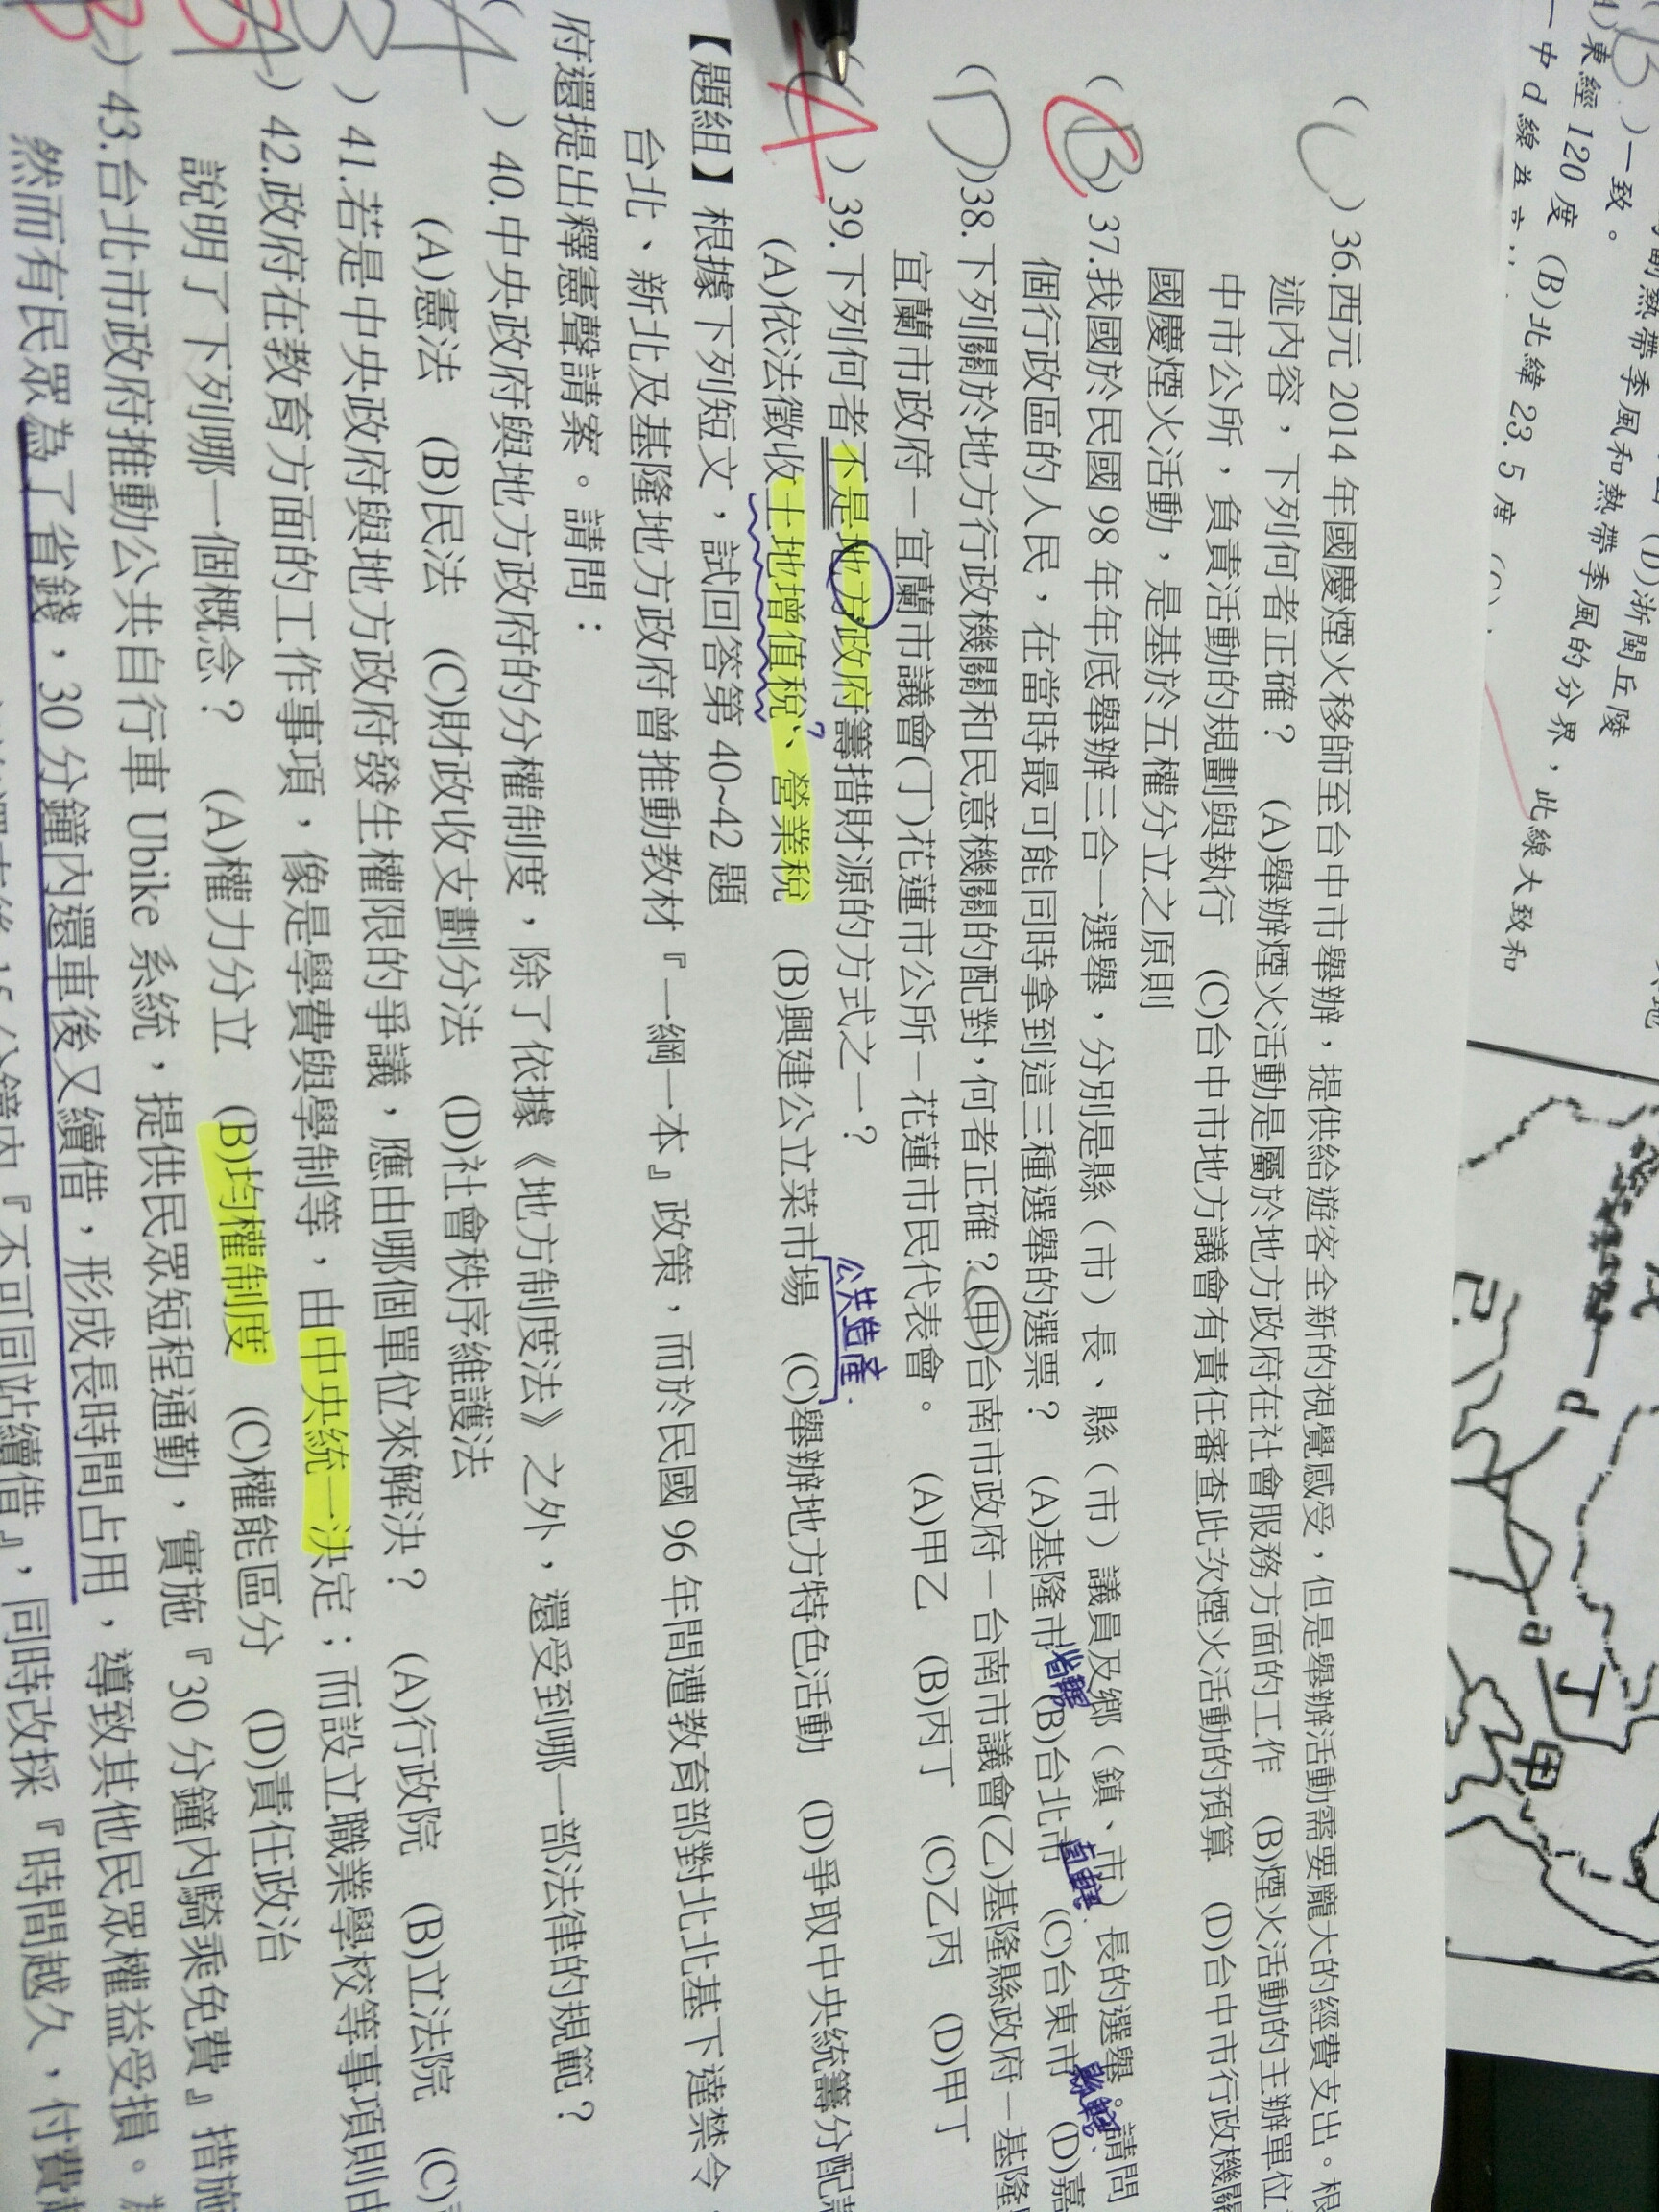 )一致。
東經 120 度 (B)北緯 23.5 度 (C)
副熱帶季風和熱帶季風的分界，此線大致和
(D)浙閩丘陵
一中 d 線為
d
a
丁
甲
己
( C ) 36.西元 2014 年國慶煙火移師至台中市舉辦，提供給遊客全新的視覺感受，但是舉辦活動需要龐大的經費支出。根
述內容，下列何者正確？ (A)舉辦煙火活動是屬於地方政府在社會服務方面的工作 (B)煙火活動的主辦單位
中市公所，負責活動的規劃與執行 (C)台中市地方議會有責任審查此次煙火活動的預算 (D)台中市行政機關
國慶煙火活動，是基於五權分立之原則
( B ) 37.我國於民國 98 年年底舉辦三合一選舉，分別是縣（市）長、縣（市）議員及鄉（鎮、市）長的選舉。請問
個行政區的人民，在當時最可能同時拿到這三種選舉的選票？ (A)基隆市 (B)台北市 (C)台東市 (D)嘉
省轄
直轄
縣轄
( D ) 38.下列關於地方行政機關和民意機關的配對，何者正確？(甲)台南市政府－台南市議會(乙)基隆縣政府－基隆
宜蘭市政府－宜蘭市議會(丁)花蓮市公所－花蓮市民代表會。 (A)甲乙 (B)丙丁 (C)乙丙 (D)甲丁
( A ) 39.下列何者不是地方政府籌措財源的方式之一？
公共造產
(A)依法徵收土地增值稅、營業稅 (B)興建公立菜市場 (C)舉辦地方特色活動 (D)爭取中央統籌分配
?
【題組】根據下列短文，試回答第 40~42 題
台北、新北及基隆地方政府曾推動教材『一綱一本』政策，而於民國 96 年間遭教育部對北北基下達禁令
府還提出釋憲聲請案。請問：
( A ) 40.中央政府與地方政府的分權制度，除了依據《地方制度法》之外，還受到哪一部法律的規範？
(A)憲法 (B)民法 (C)財政收支劃分法 (D)社會秩序維護法
( B ) 41.若是中央政府與地方政府發生權限的爭議，應由哪個單位來解決？ (A)行政院 (B)立法院 (C)
( A ) 42.政府在教育方面的工作事項，像是學費與學制等，由中央統一決定；而設立職業學校等事項則由
說明了下列哪一個概念？ (A)權力分立 (B)均權制度 (C)權能區分 (D)責任政治
) 43.台北市政府推動公共自行車 Ubike 系統，提供民眾短程通勤，實施『30 分鐘內騎乘免費』措施
然而有民眾為了省錢，30 分鐘內還車後又續借，形成長時間占用，導致其他民眾權益受損。
15 分鐘內『不可同站續借』，同時改採『時間越久，付費